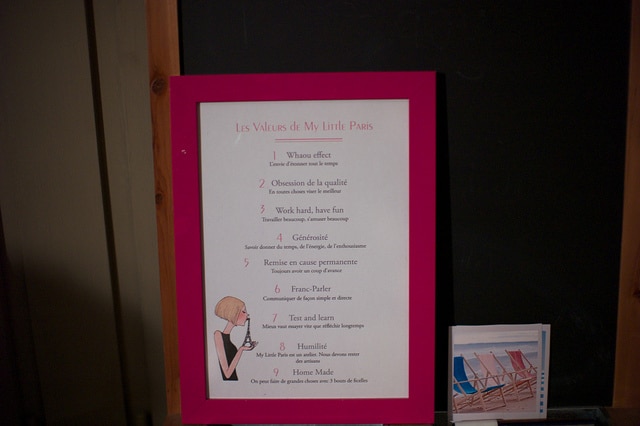 Les Valeurs de My Little Paris
1 Whaou effect
L'envie d'étonner tout le temps
2 Obsession de la qualité
En toutes choses viser le meilleur
3 Work hard, have fun
Travailler beaucoup, s'amuser beaucoup
4 Générosité
Savoir donner du temps, de l'énergie, de l'enthousiasme
5 Remise en cause permanente
Toujours avoir un coup d'avance
6 Franc-Parler
Communiquer de façon simple et directe
7 Test and learn
Mieux vaut essayer vite que réfléchir longtemps
8 Humilité
My Little Paris est un atelier. Nous devons rester
des artisans
9 Home Made
On peut faire de grandes choses avec 3 bouts de ficelles